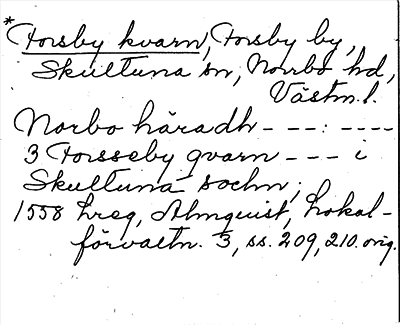 * Forsby kvarn, Forsby by,
Skultuna sn, Norrbo hd,
Västm. l.
Norbo häradh - - -: - - - -
3 Forsseby qvarn - - - i
Skultuna sochn;
1558 hreg, Almquist, Lokal-
förvaltn. 3, ss. 209, 210. orig.